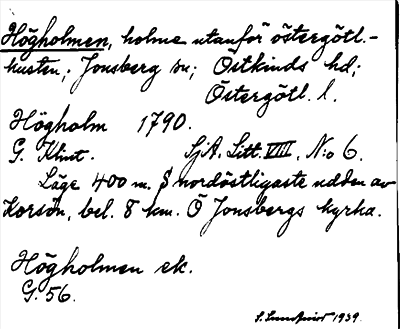 Högholmen, holme utanför östergötl.-
kusten; Jonsberg sn; Östkinds hd;
Östergötl. l.
Högholm 1790.
G. Klint. SjA. Litt. VIII, N:o 6.
Läge 400 m. S nordöstligaste udden av
Korsön, bel. 8 km. Ö Jonsbergs kyrka.
Högholmen ek.
G. 56.
1939.